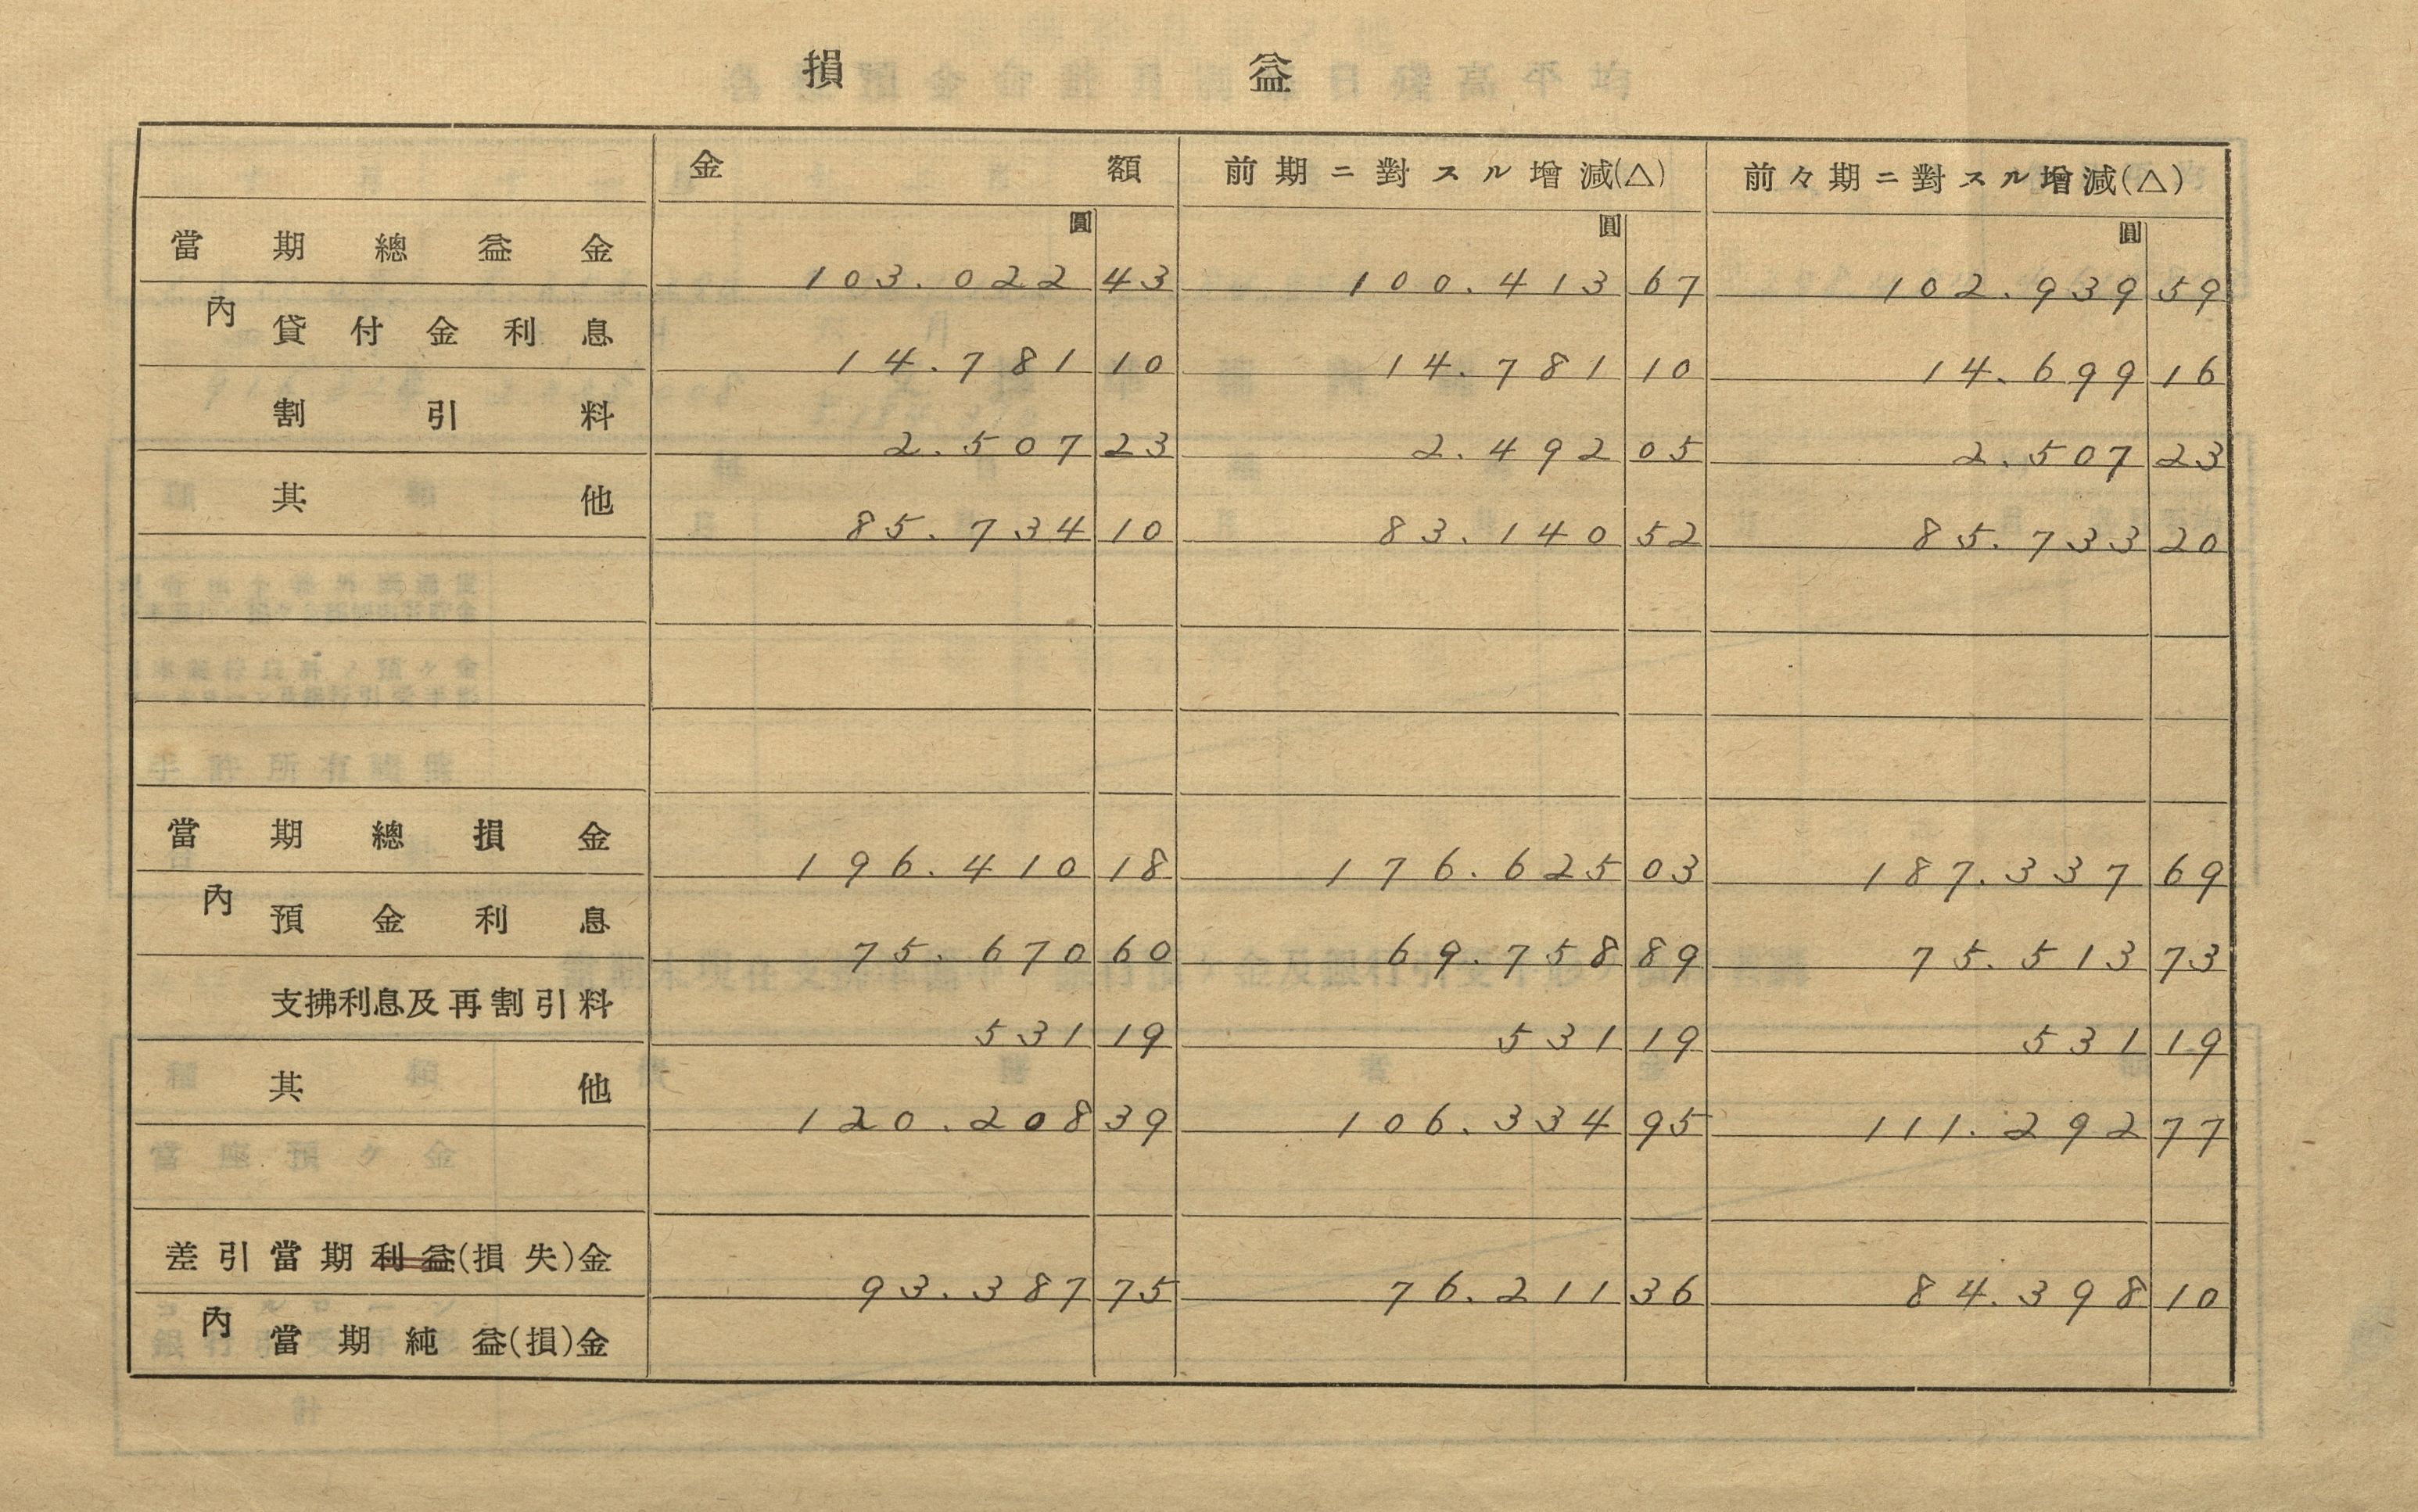 損益
金額 前期ニ對スル增減(△) 前々期ニ對スル增減(△)
圓 圓 圓
當期總益金 103.022 43 100.413 67 102.939 59
內 貸付金利息 14.781 10 14.781 10 14.699 16
割引料 2.507 23 2.492 05 2.507 23
其他 85.734 10 83.140 52 85.733 20
當期總損金 196.410 18 176.625 03 187.337 69
內 預金利息 75.670 60 69.758 89 75.513 73
支拂利息及再割引料 531 19 531 19 531 19
其他 120.208 39 106.334 95 111.292 77
差引當期利益(損失)金 93.387 75 76.211 36 84.398 10
內 當期純益(損)金